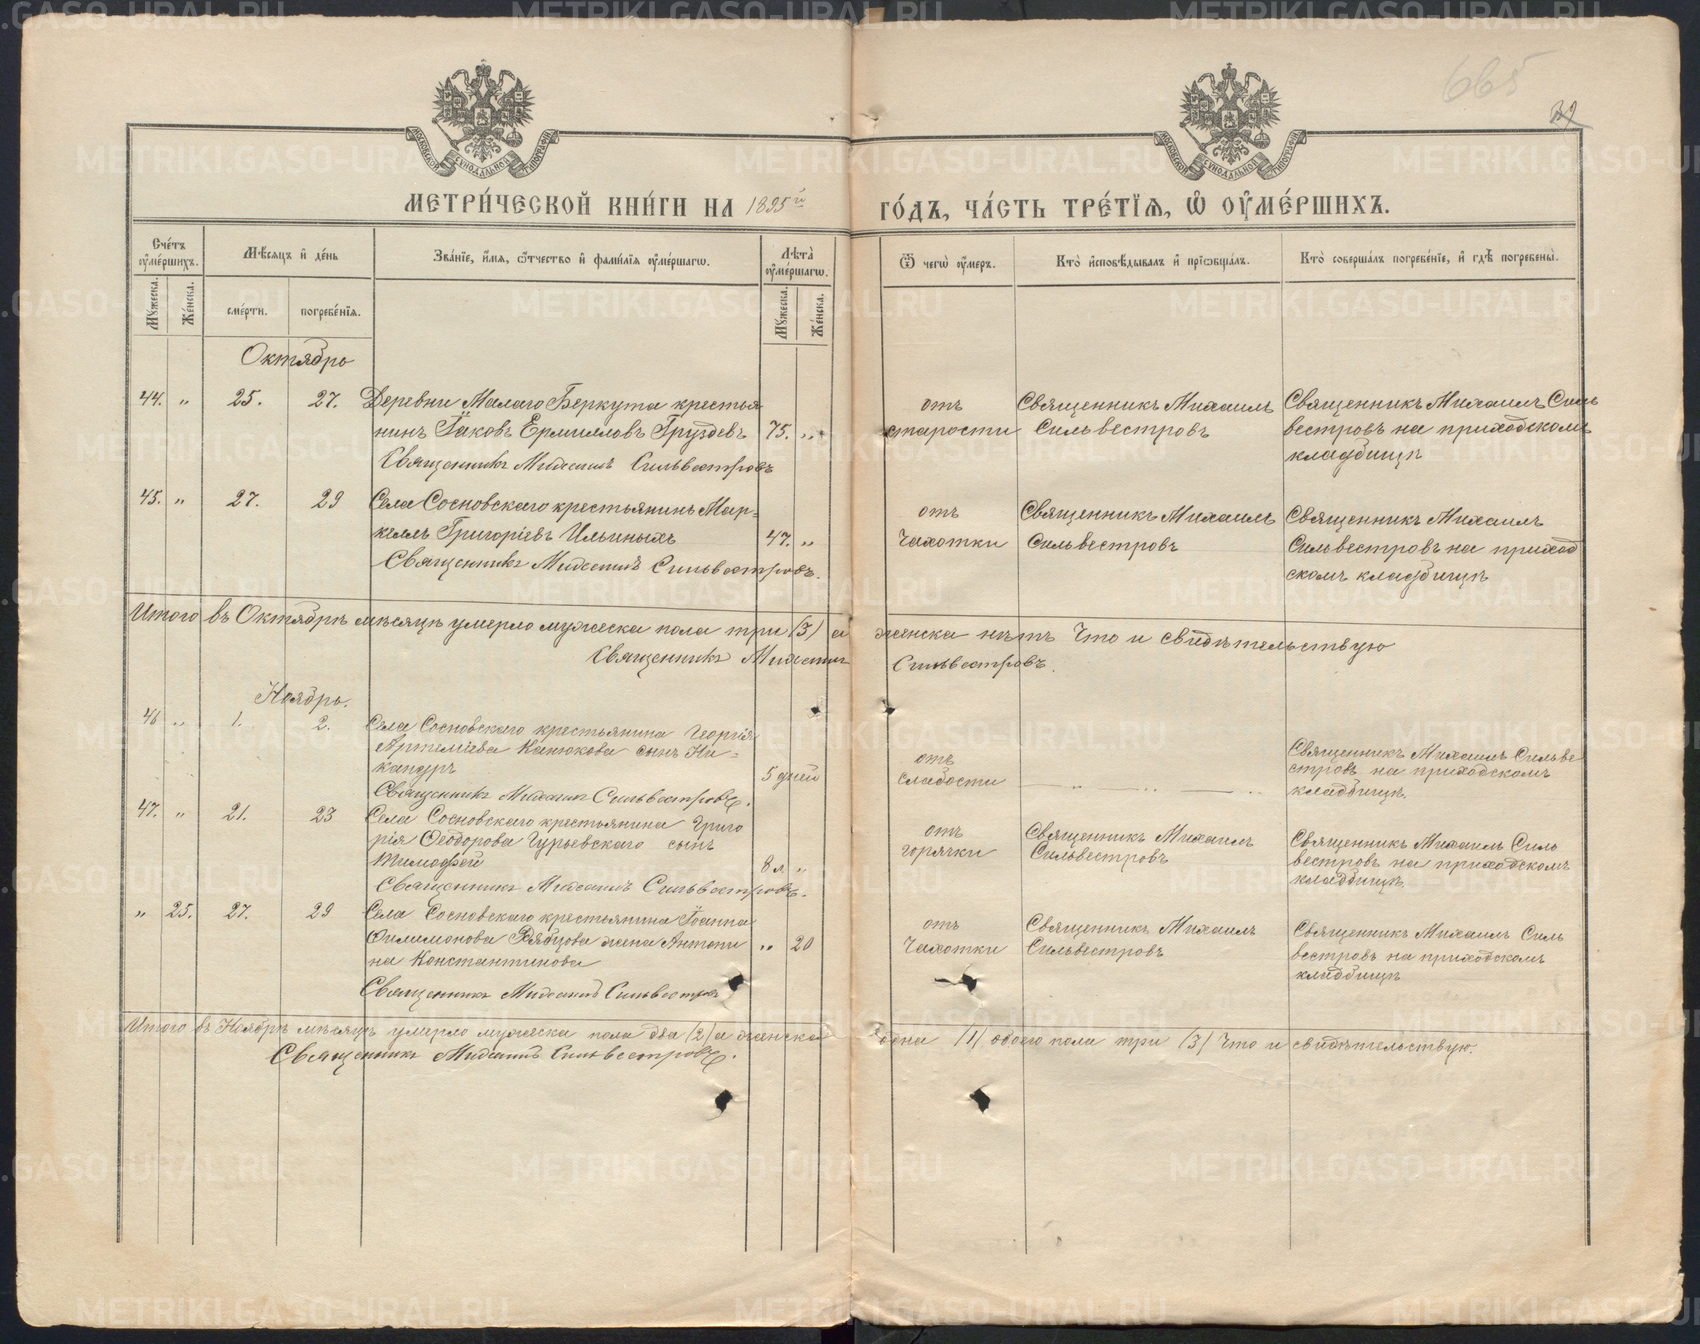 665
32
МЕТРИ́ЧЕСКОЙ КНИ́ГИ НА 1895й ГО́ДЪ, ЧА́СТЬ ТРЕ́ТЇѦ, Ѽ ОУ҆МЕ́РШИХЪ.
МОСКОВСКОЙ СѴНОДАЛЬНОЙ ТИПОГРАФІИ
МОСКОВСКОЙ СѴНОДАЛЬНОЙ ТИПОГРАФІИ
Сче́тъ оу҆ме́ршихъ.
Мѣ́сяцъ и҆ де́нь
Зва́нїе, и҆́мя, ѻ҆́тчество и҆ фами́лїя оу҆ме́ршагѡ.
Лѣта̀ оу҆ме́ршагѡ.
Ѿ чегѡ̀ оу҆́меръ.
Кто̀ и҆сповѣ́дывалъ и҆ прїѡбща́лъ.
Кто̀ соверша́лъ погребе́нїе, и҆ гдѣ̀ погребены̀.
Мꙋ́жеска.
Же́нска.
сме́рти.
погребе́нїя.
Мꙋ́жеска.
Же́нска.
Октябрь
44. „ 25. 27. Деревни Малаго Беркута крестья
нинъ Іаковъ Ермиловъ Груздевъ 75. „
Священникъ Михаилъ Сильвестровъ
отъ
старости
Священникъ Михаилъ
Сильвестровъ
Священникъ Михаилъ Силь
вестровъ на приходскомъ
кладбищѣ
45. „ 27. 29 Села Сосновскаго крестьянинъ Мар-
келлъ Григоріевъ Ильиныхъ 47. „
Священникъ Михаилъ Сильвестровъ.
отъ
Чахотки
Священникъ Михаилъ
Сильвестровъ
Священникъ Михаилъ
Сильвестровъ на приход
скомъ кладбищѣ
Итого въ Октябрѣ мѣсяцѣ умерло мужеска пола три (3) а женска нѣтъ Что и свидѣтельствую
Священникъ Михаилъ Сильвестровъ.
Ноябрь.
46 „ 1. 2. Села Сосновскаго крестьянина Георгія
Артеміева Канюкова сынъ Ни-
кандръ 5 дней
Священникъ Михаилъ Сильвестровъ.
отъ
слабости
— „ — ... — ..
Священникъ Михаилъ Сильве
стровъ на приходскомъ
кладбищѣ.
47. „ 21. 23 Села Сосновскаго крестьянина Григо
рія Ѳеодорова Гурьевскаго сынъ
Тимофей 8 л. „
Священникъ Михаилъ Сильвестровъ.
отъ
горячки
Священникъ Михаилъ
Сильвестровъ
Священникъ Михаилъ Силь
вестровъ на приходскомъ
кладбищѣ
„ 25. 27. 29 Села Сосновскаго крестьянина Іоанна
Филимонова Рябцова жена Антони „ 20
на Константинова
Священникъ Михаилъ Сильвестровъ
отъ
Чахотки
Священникъ Михаилъ
Сильвестровъ
Священникъ Михаилъ Силь
вестровъ на приходскомъ
кладбищѣ
Итого въ Ноябрѣ мѣсяцѣ умерло мужеска пола два (2) а женска одна (1) обоего пола три (3) Что и свидѣтельствую.
Священникъ Михаилъ Сильвестровъ.
METRIKI.GASO-URAL.RU